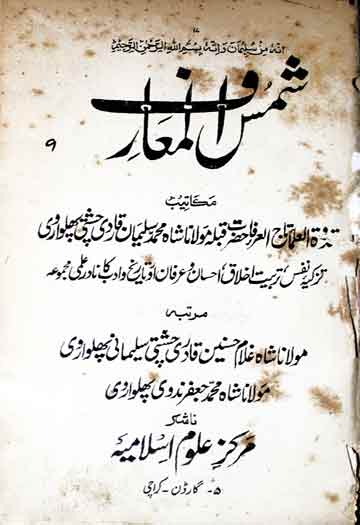 انہ من سلیمان وانہ بسم اللہ الرحمن الرحیم
شمس المعارف
مکاتیب
قدوۃ العلما تاج العرفا حضرت قبلہ مولانا شاہ محمد سلیمان قادری چشتی پھلواروی
تزکیہ نفس، تربیت اخلاق، احسان و عرفان اور تاریخ و ادب کا نادر علمی مجموعہ
مرتبہ
مولانا شاہ غلام حسنین قادری چشتی سلیمانی پھلواروی
مولانا شاہ محمد جعفر ندوی پھلواروی
ناشر
مرکز علوم اسلامیہ
۵- گارڈن - کراچی